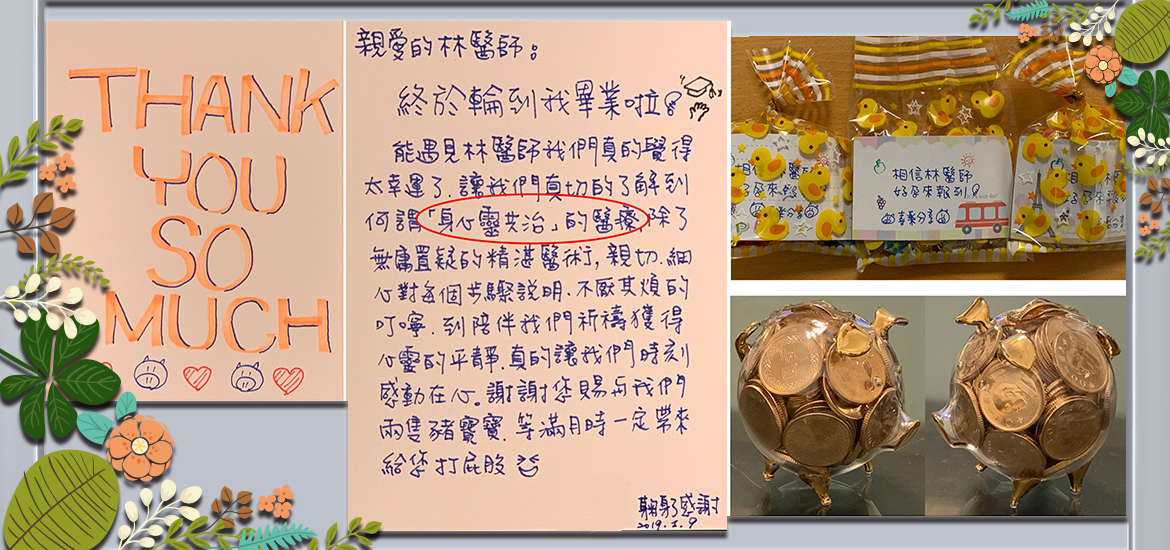 THANK
YOU
SO
MUCH
親愛的林醫師:
終於輪到我畢業啦!
能遇見林醫師我們真的覺得
太幸運了.讓我們真切的了解到
何謂「身心靈共治」的醫療,除了
無庸置疑的精湛醫術,親切.細
心對每個步驟說明.不厭其煩的
叮嚀.到陪伴我們祈禱獲得
心靈的平靜.真的讓我們時刻
感動在心。謝謝您賜與我們
兩隻豬寶寶.等滿月時一定帶來
給您打屁股
鞠躬感謝
2019.
相信林醫師
好孕來報到!